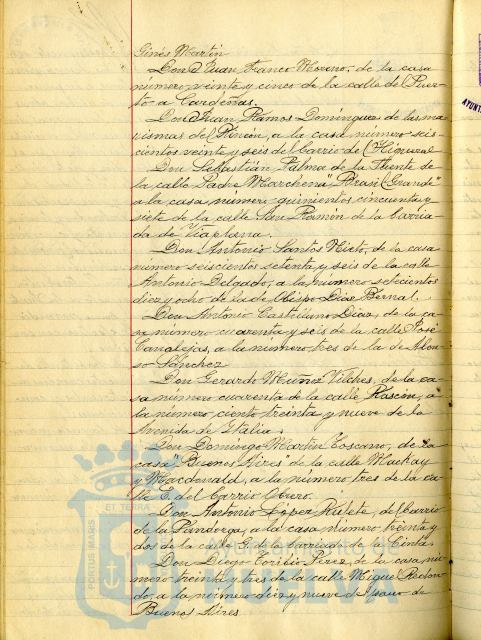 Ginés Martín
Don Juan Franco Moreno, de la casa
número veinte y cinco de la calle del Puer-
to a Cardeñas.
Don Juan Ramos Domínguez de las ma-
rismas del Pinzón, a la casa número seis-
cientos veinte y seis del barrio de Higueral
Don Sebastián Palma de la Fuente de
la calle Padre Marchena "Brasil Grande"
a la casa número quinientos cincuenta y
siete de la calle San Ramón de la barria-
da de Viaplana.
Don Antonio Santos Nieto, de la casa
número seiscientos setenta y seis de la calle
Antonio Delgado, a la número setecientos
diez y ocho de la de Obispo Díaz Bernal.
Don Antonio Castellano Díaz, de la ca-
sa número cuarenta y seis de la calle José
Canalejas, a la número tres de la de Alon-
so Sánchez
Don Gerardo Muñoz Vilches, de la ca-
sa número cuarenta de la calle Rascón, a
la número ciento treinta y nueve de la
Avenida de Italia.
Don Domingo Martín Toscano, de la
casa "Buenos Aires" de la calle Mackay
y Macdonald, a la número tres de la ca-
lle E. del barrio Obrero.
Don Antonio López Rulete, del barrio
de la Pandorga, a la casa número treinta y
dos de la casa G. de la barriada de la Cinta.
Don Diego Pérez, de la casa nú-
mero treinta y tres de la calle Miguel Redon-
do, a la número diez y nueve de
Buenos Aires
Ayuntamiento de
HUELVA
PORTUS MARIS ET TERRAE
AYUNT